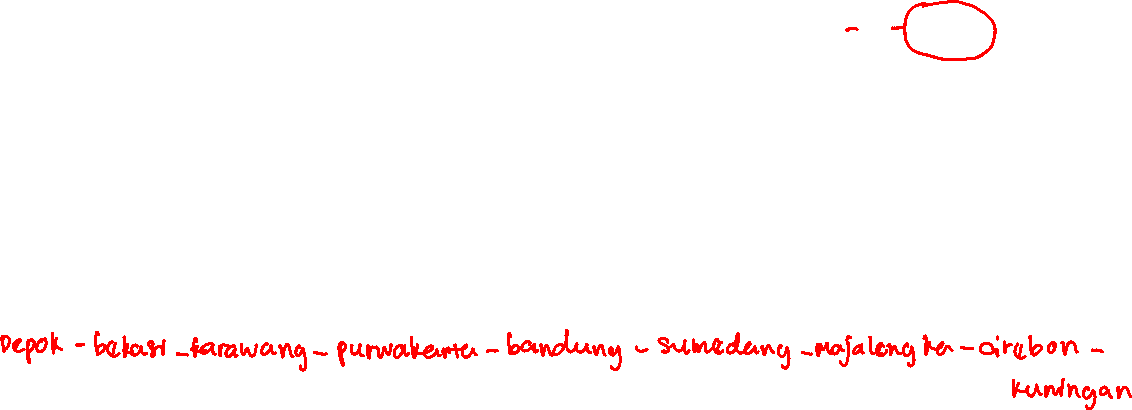 Depok - bekasi - karawang - purwakarta - bandung - sumedang - majalengka - cirebon -
kuningan